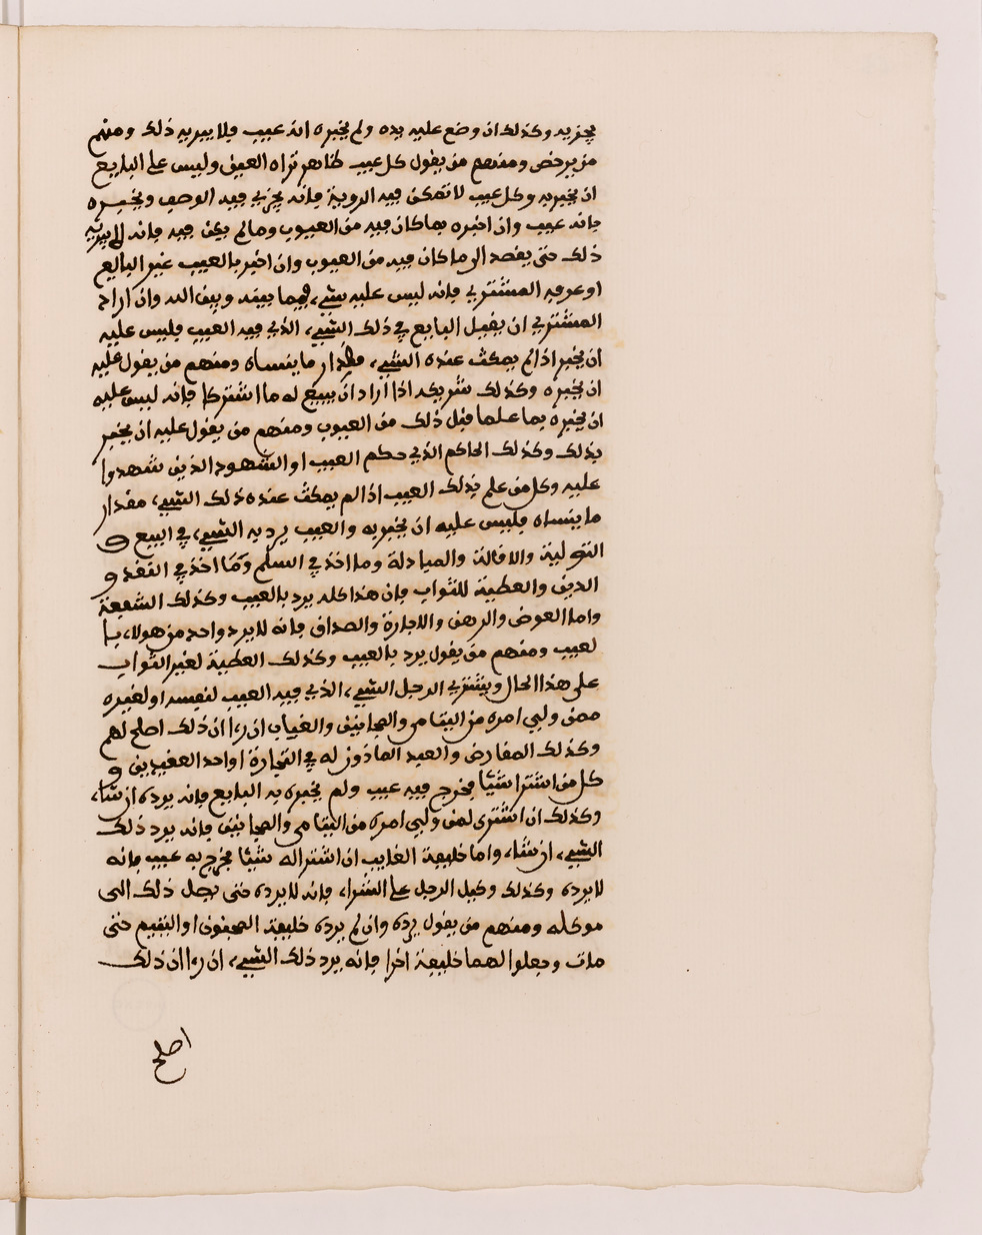 يجزيه وكذلك ان وضع عليه يده ولم يخبره انه عيب فلا يبريه ذلك ومنهم
من يرخص ومنهم من يقول كل عيب ظاهر تراه العين وليس على البايع
ان يخبر به وكل عيب لا تمكن فيه الروية فانه يجزي فيه الوصف ويخبره
بانه عيب وان اخبره بما كان فيه من العيوب وما لم يكن فيه فانه لا يبريه
ذلك حتى يقصد الى ما كان فيه من العيوب وان اخبر بالعيب غير البايع
او عرفه المشتري فانه ليس عليه شيء فيما بينه وبين الله وان اراد
المشتري ان يقيل البايع في ذلك الشيء الذي فيه العيب فليس عليه
ان يخبر اذا لم يمكث عنده الشيء مقدار ما ينساه ومنهم من يقول عليه
ان يخبره وكذلك شريكه اذا اراد ان يبيع له ما اشتركا فانه ليس عليه
ان يخبره بما علما قبل ذلك من العيوب ومنهم من يقول عليه ان يخبر
بذلك وكذلك الحاكم الذي حكم العيب او الشهود الذين شهدوا
عليه وكل من علم بذلك العيب اذا لم يمكث عنده ذلك الشيء مقدار
ما ينساه فليس عليه ان يخبر به والعيب يرد به الشيء في البيع و
التولية والاقالة والمبادلة وما اخذ في السلم وما اخذ في النقد و
الدين والعطية للثواب فان هذا كله يرد بالعيب وكذلك الشفعة
واما العوض والرهن والاجارة والصداق فانه لا يرد واحد من هولاء با
لعيب ومنهم من يقول يرد بالعيب وكذلك العطية لغير الثواب
على هذا الحال ويشتري الرجل الشيء الذي فيه العيب لنفسه او لغيره
ممن ولي امره من اليتامى والمجانين والغياب ان رءا ان ذلك اصلح لهم
وكذلك المقارض والعبد الماذون له في التجارة او احد العقيدين و
كل من اشترا شيئا فخرج فيه عيب ولم يخبره به البايع فانه يرده ان شاء
وكذلك ان اشترى لمن ولي امره من اليتامى والمجانين فانه يرد ذلك
الشيء ان شاء واما خليفة الغايب ان اشترا له شيئا فخرج به عيب فانه
لا يرده وكذلك وكيل الرجل على الشراء فانه لا يرده حتى يصل ذلك الى
موكله ومنهم من يقول يرده وان لم يرده خليفة المجنون او اليتيم حتى
مات وجعلوا لهما خليفة اخرا فانه يرد ذلك الشيء ان رءا ان ذلك
اصلح